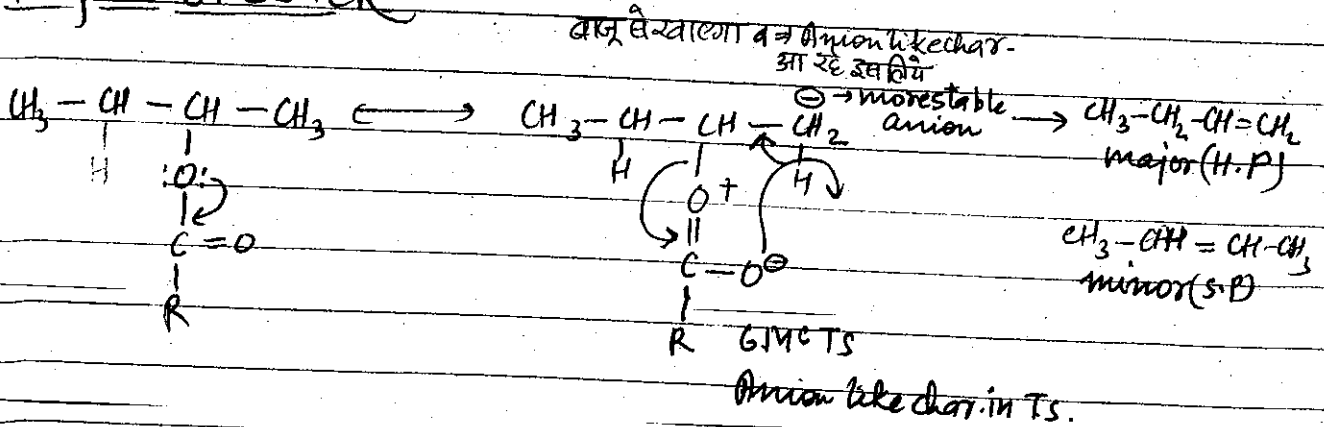 बाजू से खाएगा व ⇒ Anion like char-
आ रहे इसलिये
⊖ → more stable
anion
CH₃ – CH – CH – CH₃ ⟷ CH₃ – CH – CH – CH₂ → CH₃–CH₂–CH=CH₂
major (H.P)
H :O: H O⁺ H
C = O C – O⊖
CH₃ – CH = CH–CH₃
minor (S.P)
R R
6 M C TS
Anion like char. in Ts.